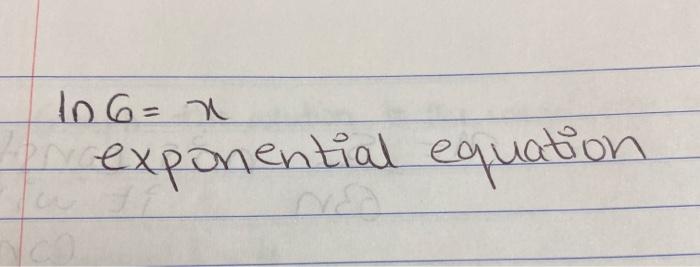 ln 6 = x
exponential equation